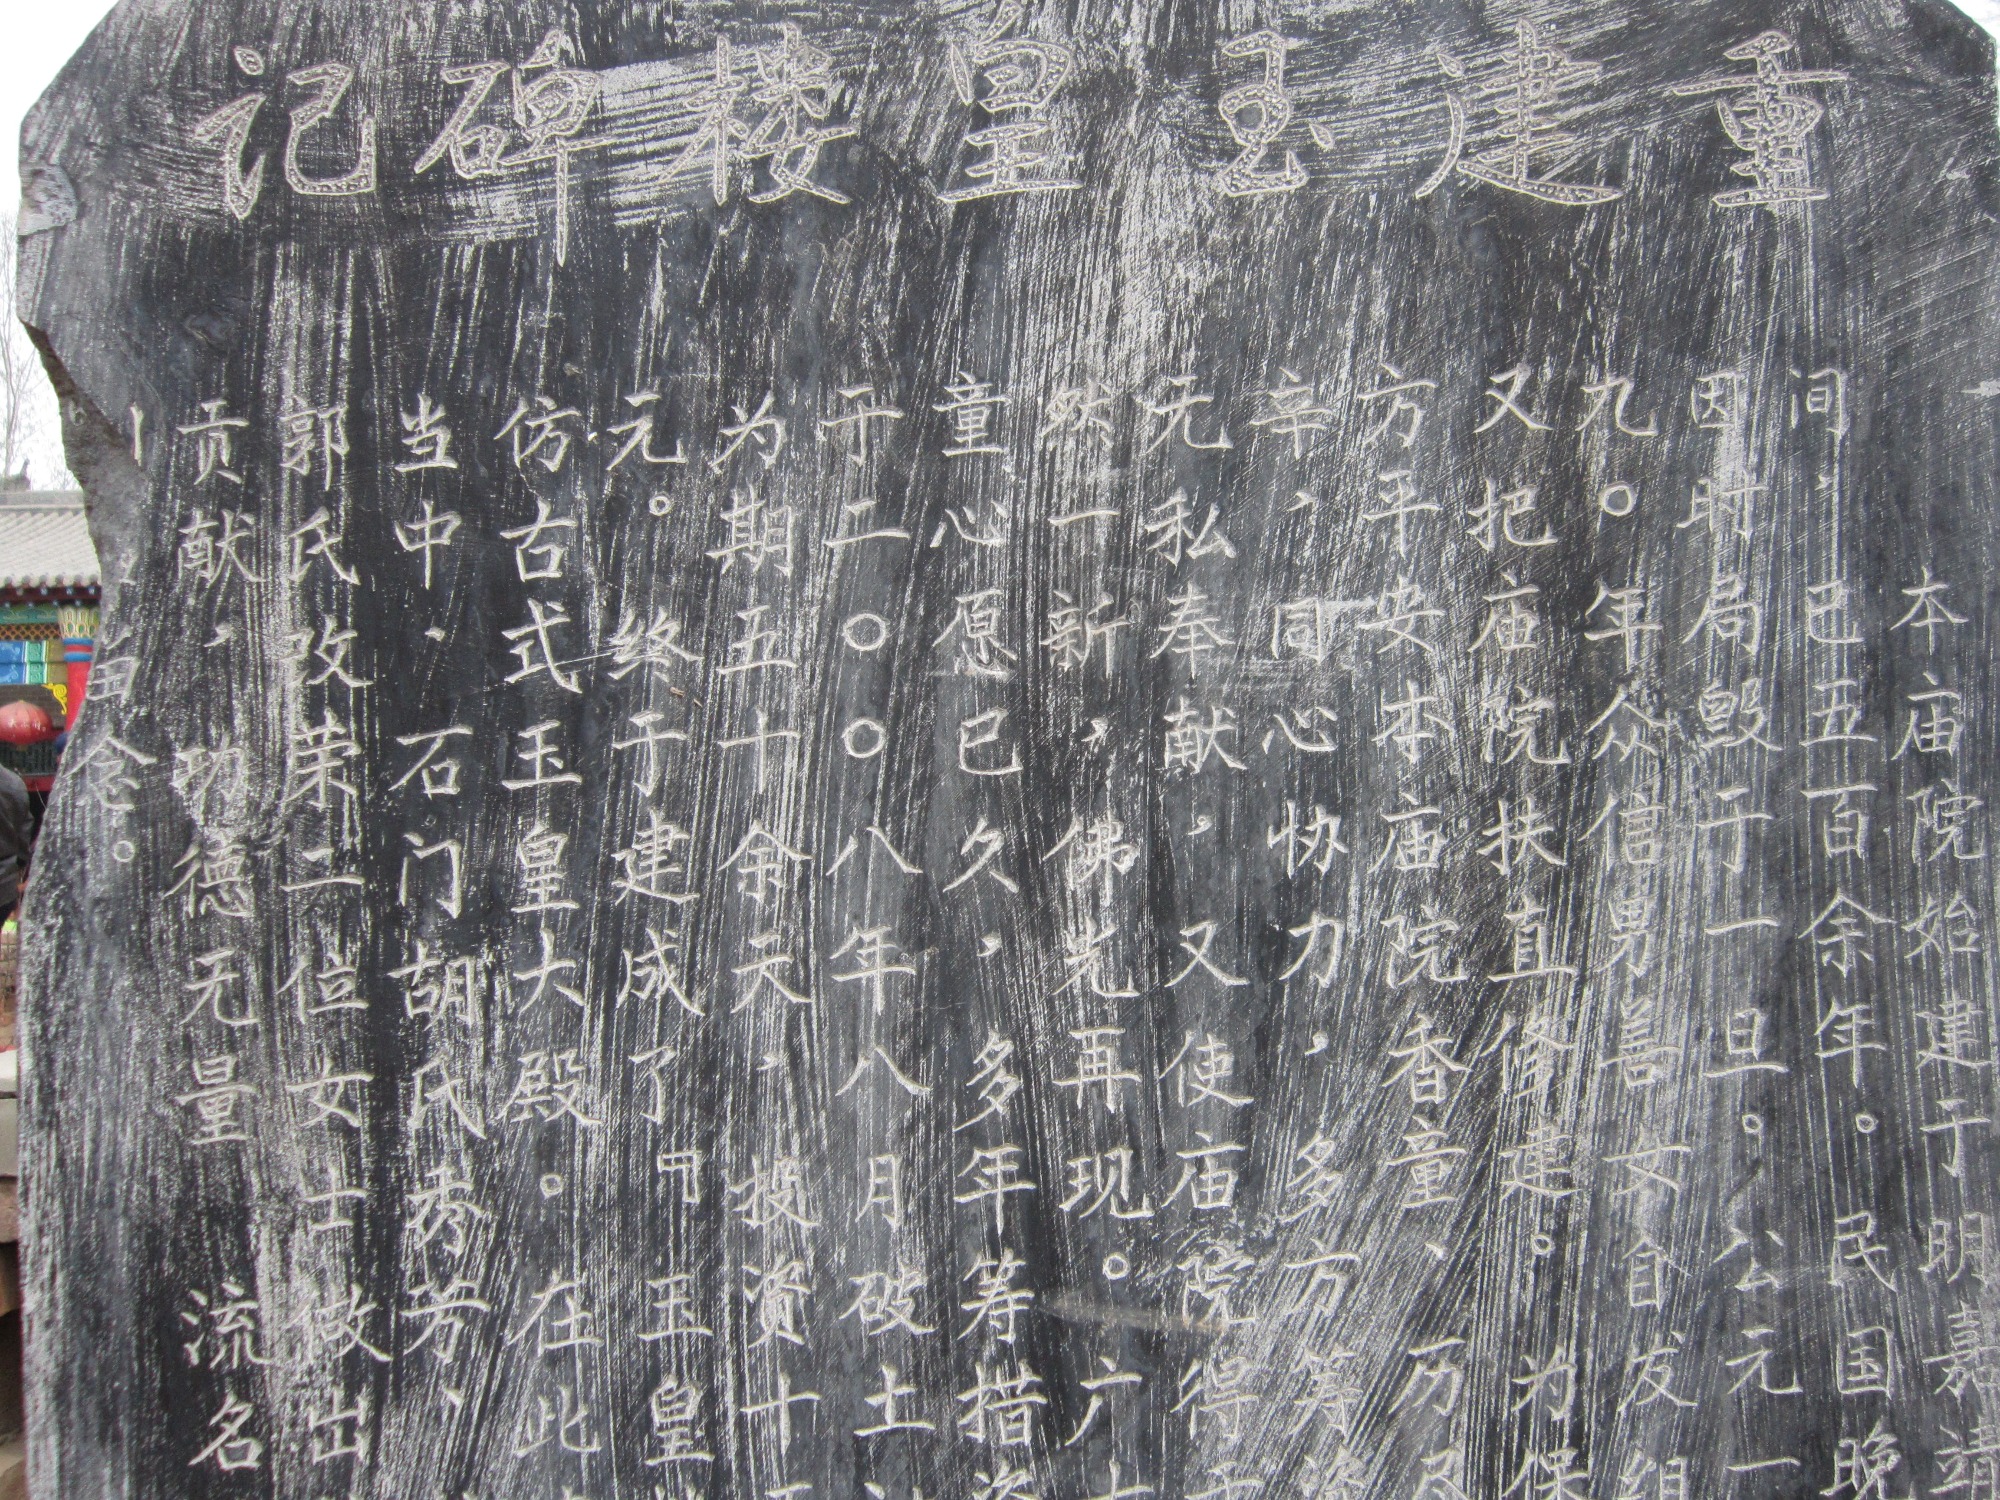 重建玉皇楼碑记
本庙院始建于明嘉靖
间、已五百余年。民国晚
因时局毁于一旦。公元一
九。年众信男善女自发组
又把庙院扶直修建。为保
方平安本庙院香童、
辛、同心协力，多方筹资
无私奉献，又使庙院得
然一新，佛光再现。广
童心愿已久，多年筹措资
于二〇〇八年八月破土
为期五十余天，投资十
元。终于建成了 玉皇
仿古式玉皇大殿。在此
当中、石门胡氏秀芳、
郭氏改荣二位女士做出
贡献，功德无量 流名
念。